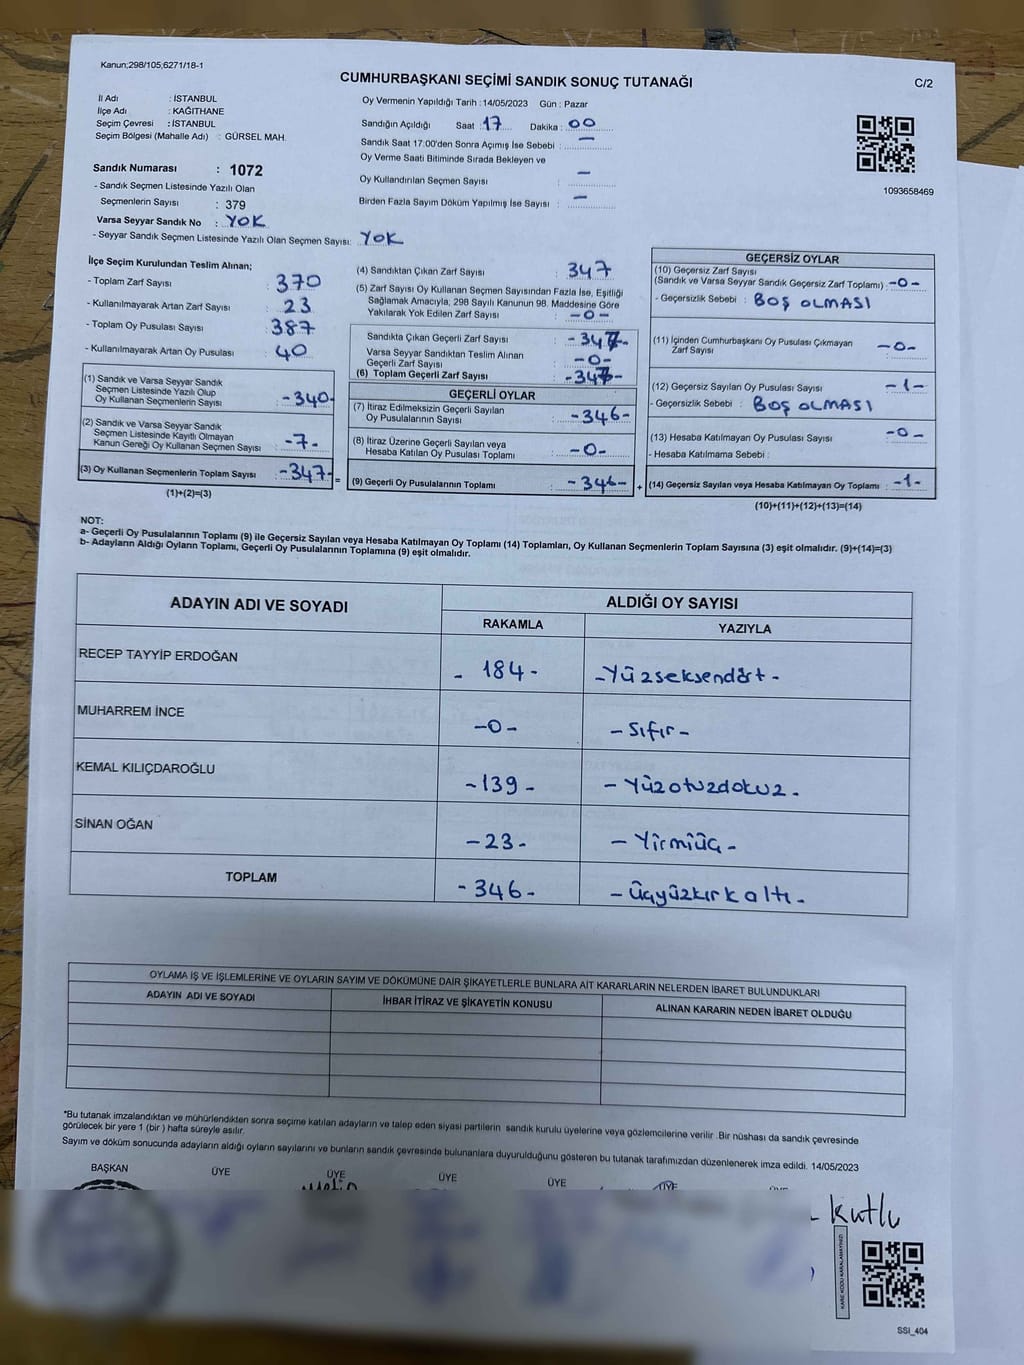 Kanun;298/105,6271/18-1
CUMHURBAŞKANI SEÇİMİ SANDIK SONUÇ TUTANAĞI
C/2
İl Adı : İSTANBUL
İlçe Adı : KAĞITHANE
Seçim Çevresi : İSTANBUL
Seçim Bölgesi (Mahalle Adı) : GÜRSEL MAH.
Oy Vermenin Yapıldığı Tarih : 14/05/2023 Gün : Pazar
Sandığın Açıldığı Saat : 17 Dakika : 00
Sandık Saat 17.00'den Sonra Açılmış İse Sebebi : —
Oy Verme Saati Bitiminde Sırada Bekleyen ve
Oy Kullandırılan Seçmen Sayısı : —
Birden Fazla Sayım Döküm Yapılmış İse Sayısı : —
1093658469
Sandık Numarası : 1072
- Sandık Seçmen Listesinde Yazılı Olan
Seçmenlerin Sayısı : 379
Varsa Seyyar Sandık No : YOK
- Seyyar Sandık Seçmen Listesinde Yazılı Olan Seçmen Sayısı: YOK
İlçe Seçim Kurulundan Teslim Alınan;
- Toplam Zarf Sayısı : 370
- Kullanılmayarak Artan Zarf Sayısı : 23
- Toplam Oy Pusulası Sayısı : 387
- Kullanılmayarak Artan Oy Pusulası : 40
(1) Sandık ve Varsa Seyyar Sandık
Seçmen Listesinde Yazılı Olup
Oy Kullanan Seçmenlerin Sayısı : -340-
(2) Sandık ve Varsa Seyyar Sandık
Seçmen Listesinde Kayıtlı Olmayan
Kanun Gereği Oy Kullanan Seçmen Sayısı : -7-
(3) Oy Kullanan Seçmenlerin Toplam Sayısı : -347-
(1)+(2)=(3)
=
(4) Sandıktan Çıkan Zarf Sayısı : 347
(5) Zarf Sayısı Oy Kullanan Seçmen Sayısından Fazla İse, Eşitliği
Sağlamak Amacıyla, 298 Sayılı Kanunun 98. Maddesine Göre
Yakılarak Yok Edilen Zarf Sayısı : -0-
Sandıkta Çıkan Geçerli Zarf Sayısı : -347-
Varsa Seyyar Sandıktan Teslim Alınan
Geçerli Zarf Sayısı : -0-
(6) Toplam Geçerli Zarf Sayısı : -347-
GEÇERLİ OYLAR
(7) İtiraz Edilmeksizin Geçerli Sayılan
Oy Pusulalarının Sayısı : -346-
(8) İtiraz Üzerine Geçerli Sayılan veya
Hesaba Katılan Oy Pusulası Toplamı : -0-
(9) Geçerli Oy Pusulalarının Toplamı : -346-
+
GEÇERSİZ OYLAR
(10) Geçersiz Zarf Sayısı
(Sandık ve Varsa Seyyar Sandık Geçersiz Zarf Toplamı) : -0-
- Geçersizlik Sebebi : BOŞ OLMASI
(11) İçinden Cumhurbaşkanı Oy Pusulası Çıkmayan
Zarf Sayısı : -0-
(12) Geçersiz Sayılan Oy Pusulası Sayısı : -1-
- Geçersizlik Sebebi : BOŞ OLMASI
(13) Hesaba Katılmayan Oy Pusulası Sayısı : -0-
- Hesaba Katılmama Sebebi :
(14) Geçersiz Sayılan veya Hesaba Katılmayan Oy Toplamı : -1-
(10)+(11)+(12)+(13)=(14)
NOT:
a- Geçerli Oy Pusulalarının Toplamı (9) ile Geçersiz Sayılan veya Hesaba Katılmayan Oy Toplamı (14) Toplamları, Oy Kullanan Seçmenlerin Toplam Sayısına (3) eşit olmalıdır. (9)+(14)=(3)
b- Adayların Aldığı Oyların Toplamı, Geçerli Oy Pusulalarının Toplamına (9) eşit olmalıdır.
ADAYIN ADI VE SOYADI ALDIĞI OY SAYISI
RAKAMLA YAZIYLA
RECEP TAYYİP ERDOĞAN - 184 - - Yüzseksendört -
MUHARREM İNCE - 0 - - Sıfır -
KEMAL KILIÇDAROĞLU - 139 - - Yüzotuzdokuz -
SİNAN OĞAN - 23 - - Yirmiüç -
TOPLAM - 346 - - Üçyüzkırkaltı -
OYLAMA İŞ VE İŞLEMLERİNE VE OYLARIN SAYIM VE DÖKÜMÜNE DAİR ŞİKAYETLERLE BUNLARA AİT KARARLARIN NELERDEN İBARET BULUNDUKLARI
ADAYIN ADI VE SOYADI İHBAR İTİRAZ VE ŞİKAYETİN KONUSU ALINAN KARARIN NEDEN İBARET OLDUĞU
*Bu tutanak imzalandıktan ve mühürlendikten sonra seçime katılan adayların ve talep eden siyasi partilerin sandık kurulu üyelerine veya gözlemcilerine verilir .Bir nüshası da sandık çevresinde
görülecek bir yere 1 (bir ) hafta süreyle asılır.
Sayım ve döküm sonucunda adayların aldığı oyların sayılarını ve bunların sandık çevresinde bulunanlara duyurulduğunu gösteren bu tutanak tarafımızdan düzenlenerek imza edildi. 14/05/2023
BAŞKAN ÜYE ÜYE ÜYE ÜYE ÜYE ÜYE
Metin
Kutlu
SSI_404